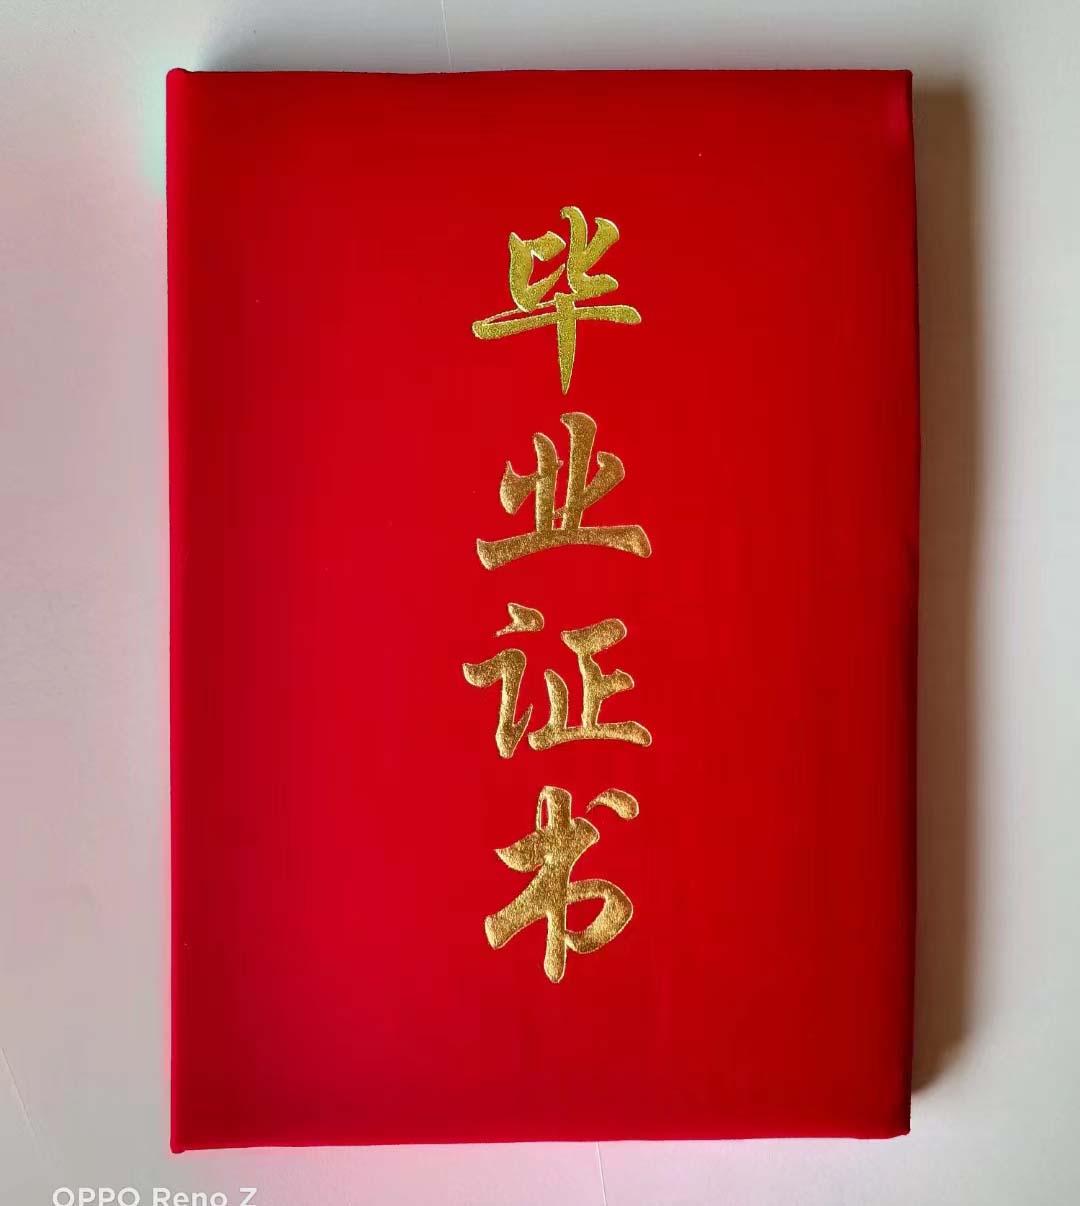 毕业证书
OPPO Reno Z